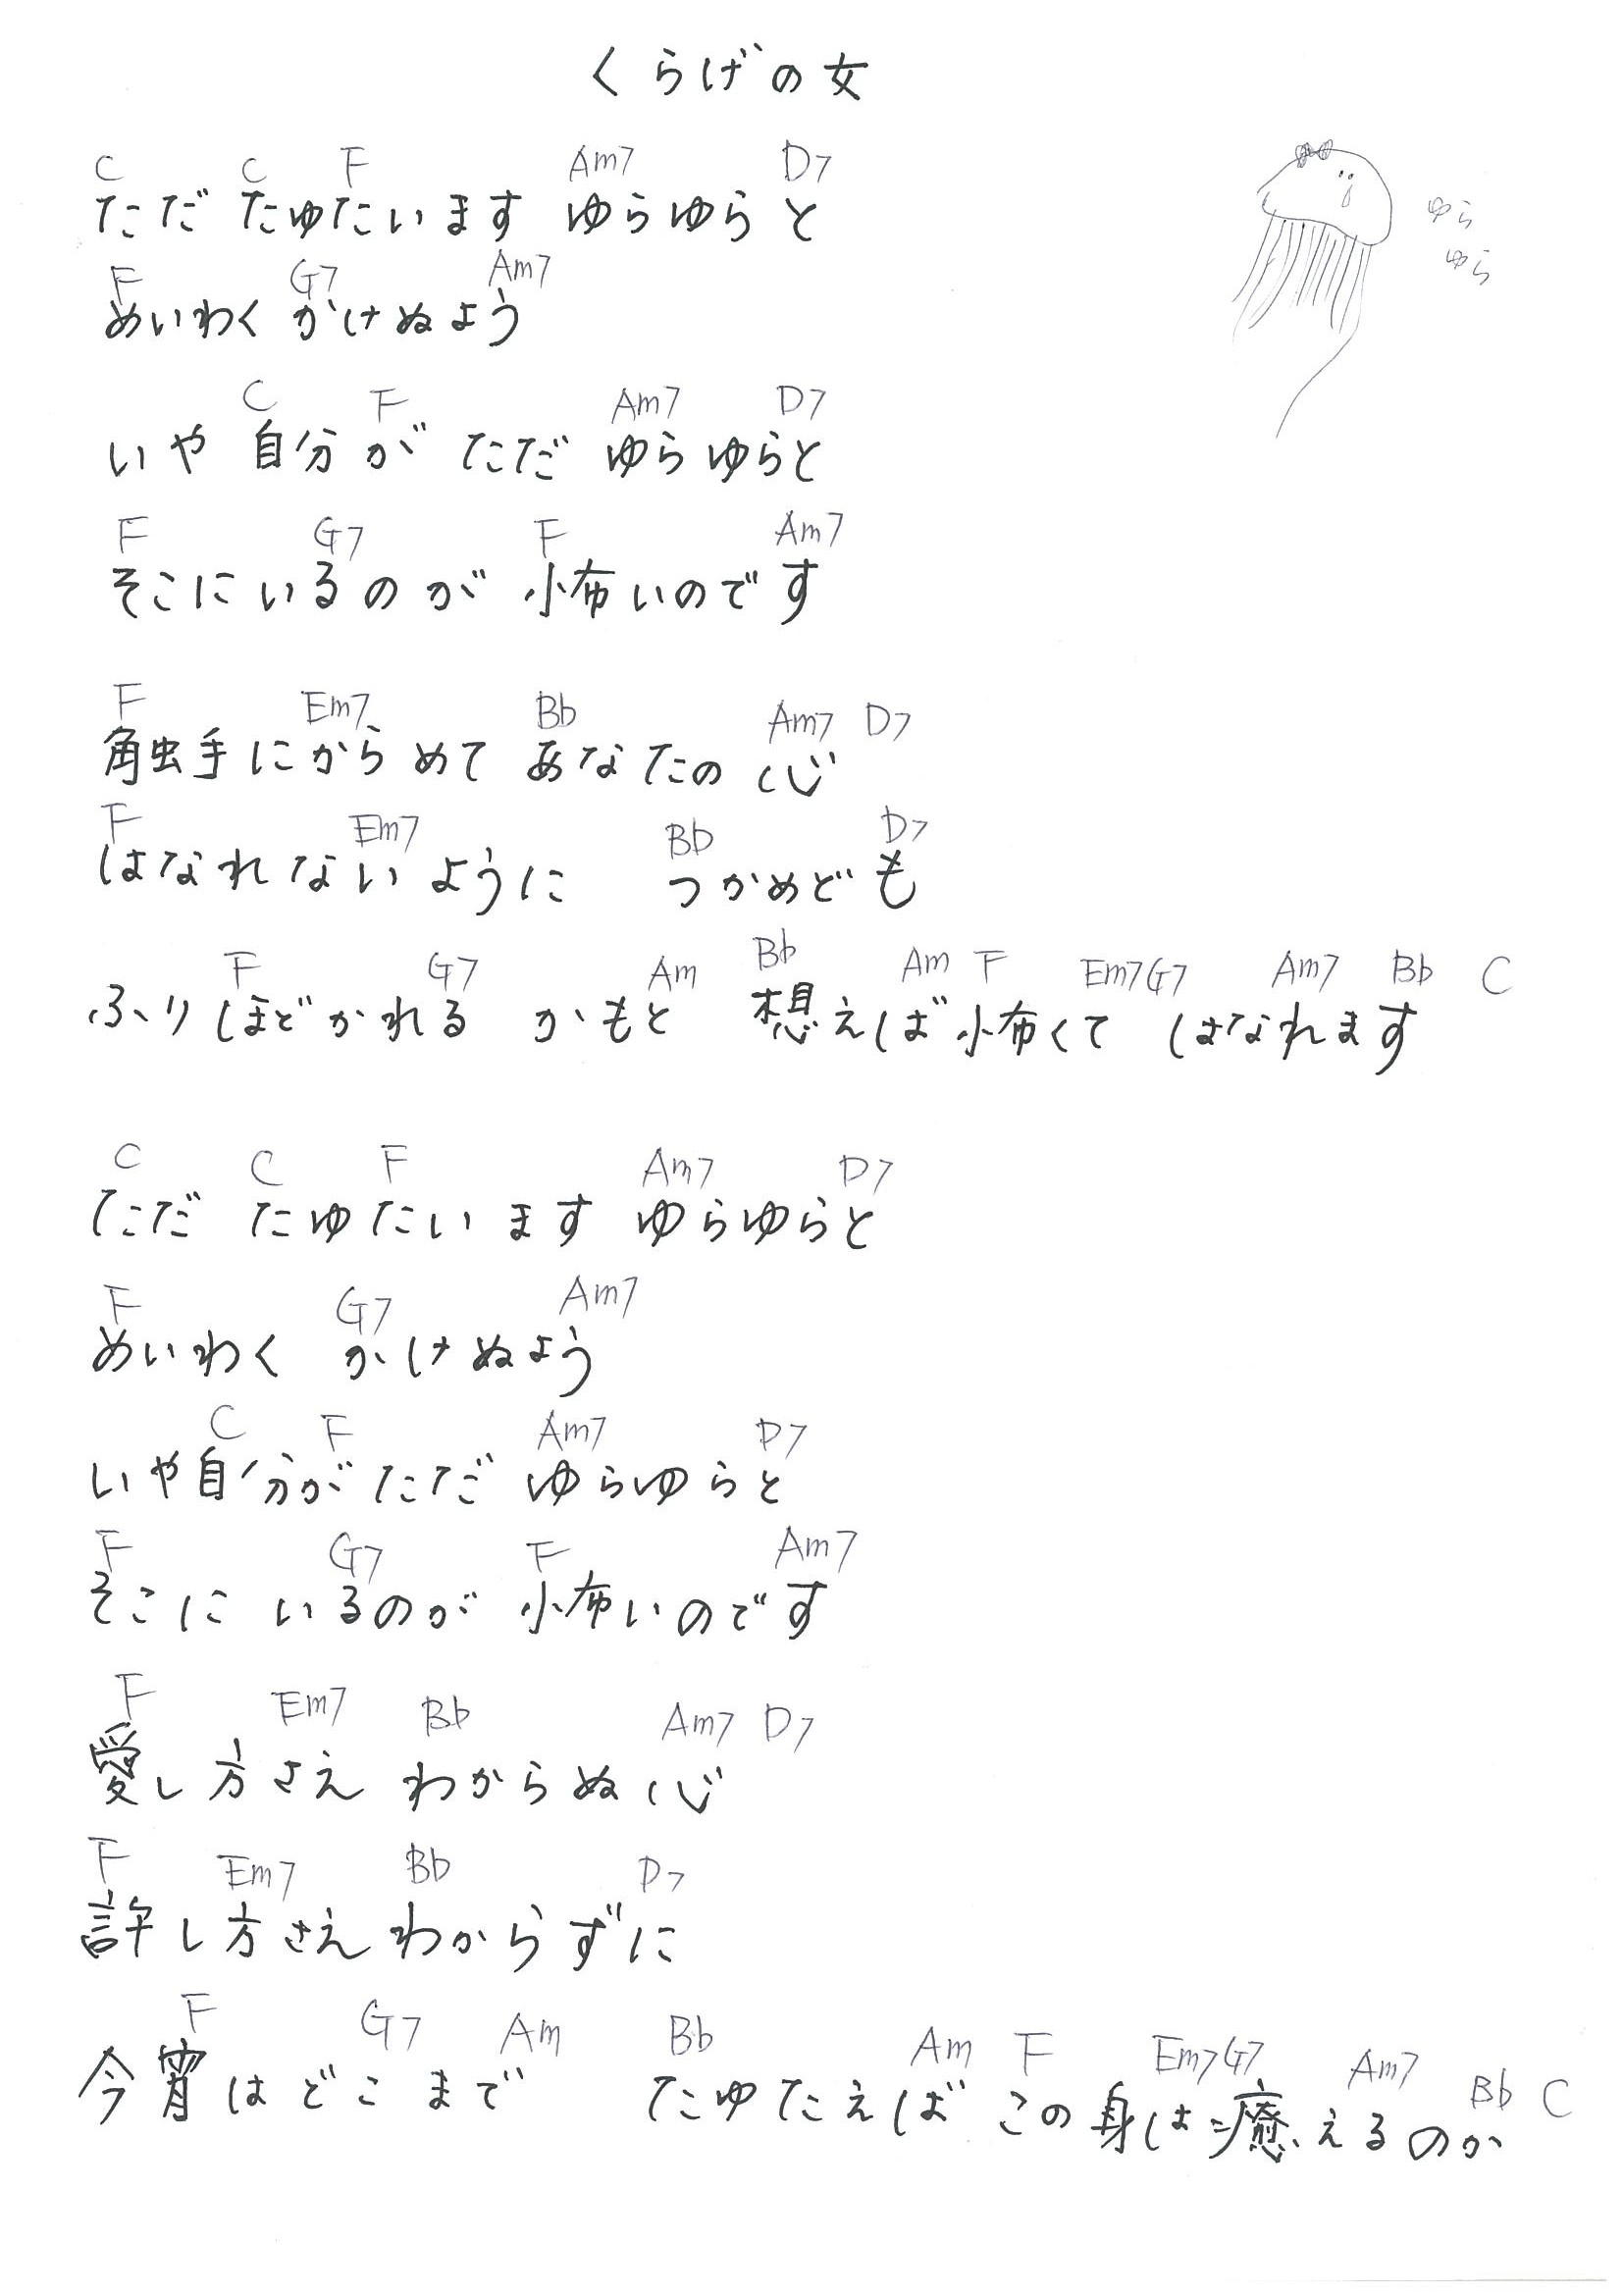 くらげの女
C C F Am7 D7
ただ たゆたいます ゆらゆらと
ゆら
ゆら
F G7 Am7
めいわく かけぬよう
C F Am7 D7
いや 自分が ただ ゆらゆらと
F G7 F Am7
そこにいるのが 怖いのです
F Em7 Bb Am7 D7
触手にからめて あなたの心
F Em7 Bb D7
はなれないように つかめども
F G7 Am Bb Am F Em7 G7 Am7 Bb C
ふりほどかれる かもと 想えば怖くて はなれます
C C F Am7 D7
ただ たゆたいます ゆらゆらと
F G7 Am7
めいわく かけぬよう
C F Am7 D7
いや自分がただ ゆらゆらと
F G7 F Am7
そこに いるのが 怖いのです
F Em7 Bb Am7 D7
愛し方さえ わからぬ心
F Em7 Bb D7
許し方さえ わからずに
F G7 Am Bb Am F Em7 G7 Am7 Bb C
今宵はどこまで たゆたえば この身は癒えるのか